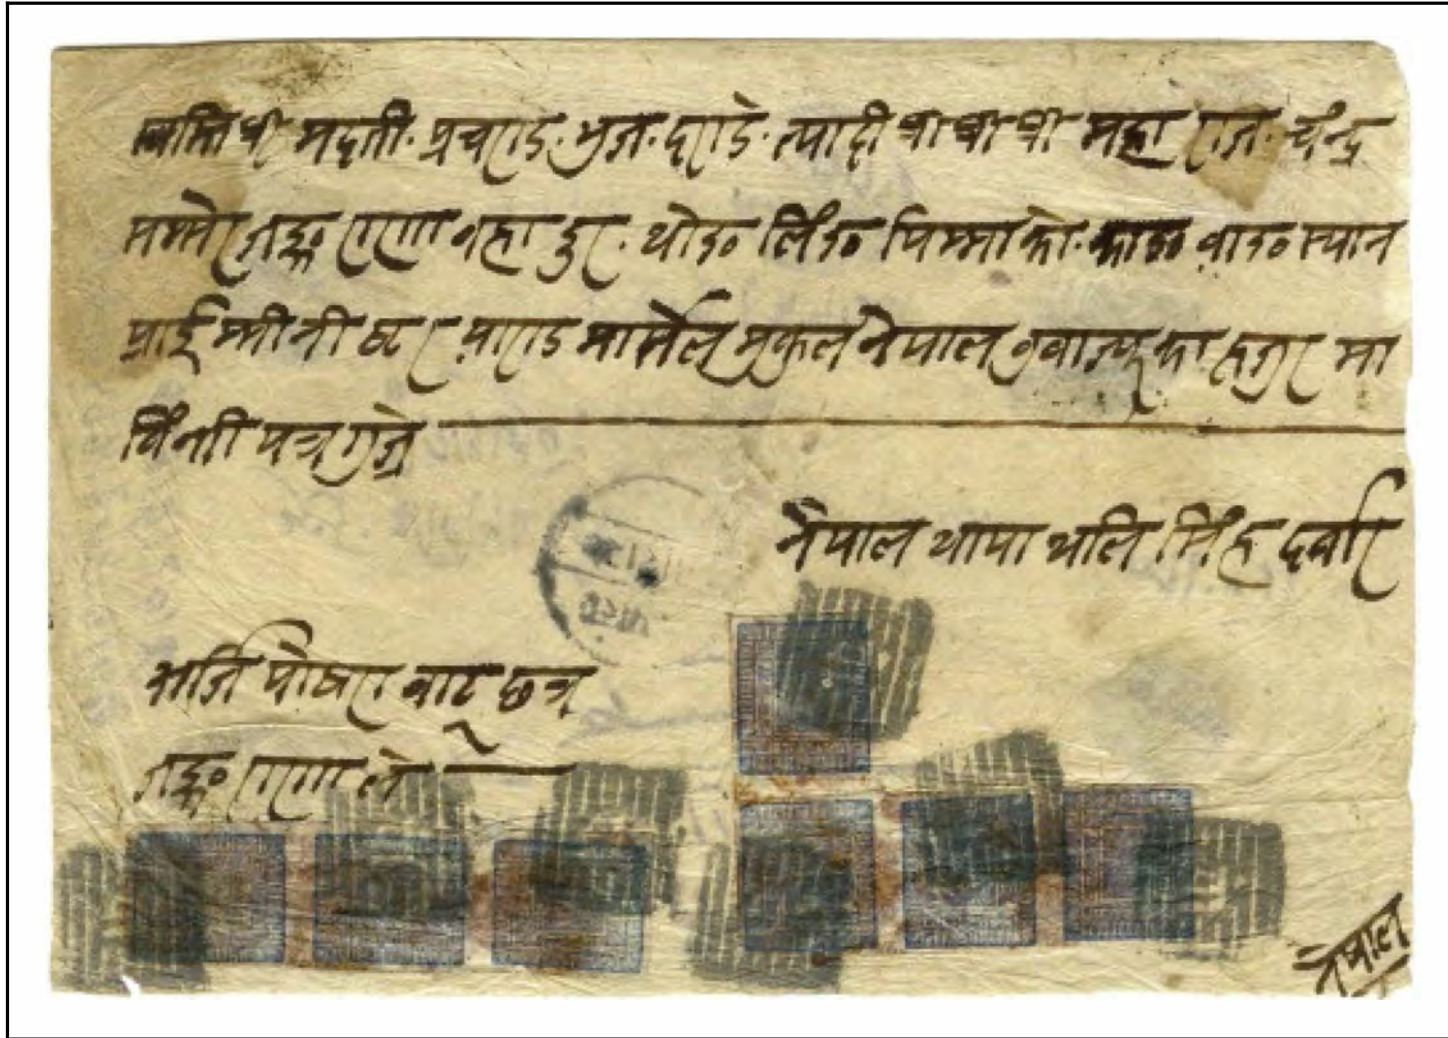 स्वस्ति श्री मदति· प्रचण्ड· भुज· दण्डे· त्यादी श्री श्री श्री महा राज· चंन्द्र
सम्सेर जङ्ग राणा वहा दुर· थोङ लिंङ पिम्मा को· काङ वाङ स्यान
प्राई म्मीनीष्टर याण्ड मार्सल मुकुल नेपाल का हजुर मा
विंन्ती पत्र
नेपाल थापा थलि सिंह दर्वार
अर्जि पोखरा वाट छत्र
जङ्ग राणा ले
नेपाल